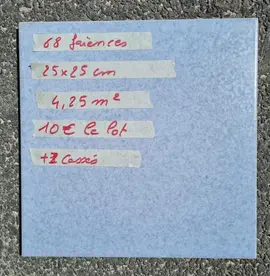 68 faïences
25x25 cm
4,25 m²
10€ le lot
+1 cassés